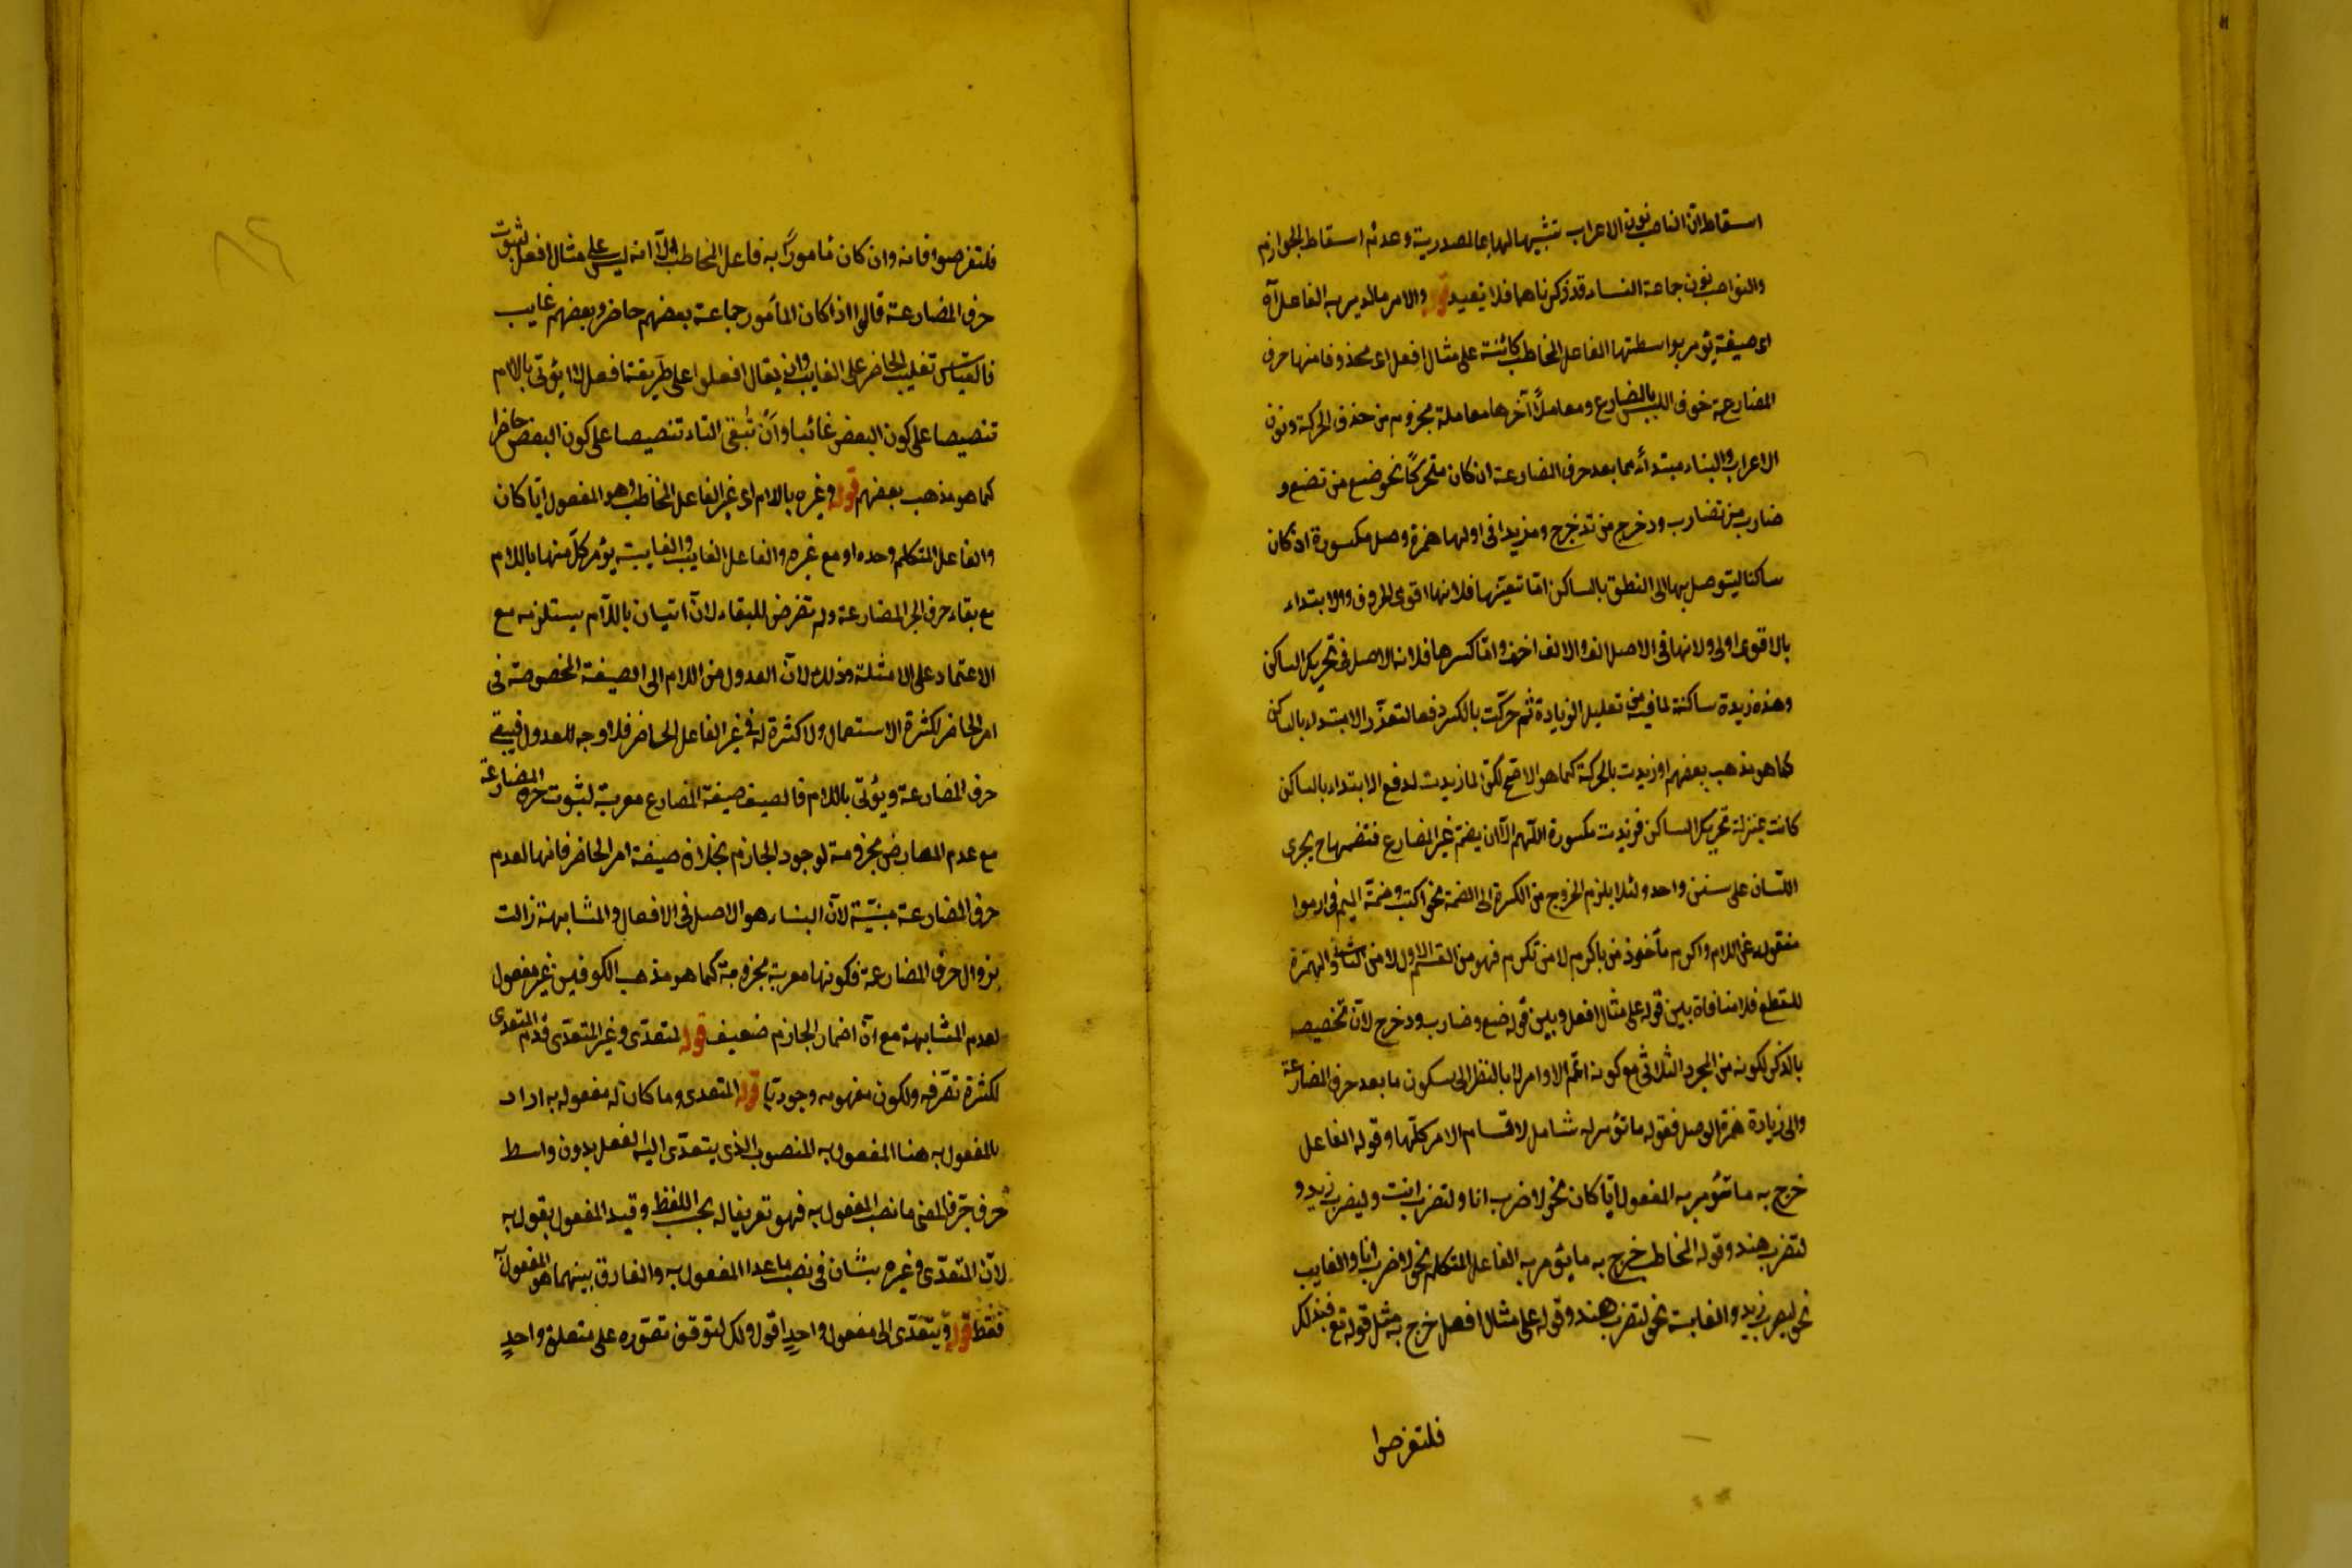 اسقاط ان الناصب نون الاعراب تشبيها لها بما المصدرية وعدم اسقاط الجوازم
والنواصب نون جماعة النساء قد ذكرناهما فلا نعيد قوله والامر ما يؤمر به الفاعل آه
اى صيغة يؤمر بواسطتها الفاعل المخاطب كائنة على مثال افعل اى محذوفا منها حرف
المضارعة خوف اللبس بالمضارع ومعاملا آخرها معاملة مجزوم من حذف الحركة ونون
الاعراب والبناء مبتدأ بما بعد حرف المضارعة ان كان متحركا نحو ضع من تضع و
ضارب من تضارب ودحرج من تدحرج ومزيدا فى اولها همزة وصل مكسورة ان كان
ساكنا ليتوصل بها الى النطق بالساكن امّا تعيّنها فلانها اقوى الحروف والابتداء
بالاقوى اولى ولانها فى الاصل الف والالف اخف وامّا كسرها فلانه الاصل فى تحريك الساكن
وهذه زيدة ساكنة لما فيه من تعليل الزيادة ثم حركت بالكسر دفعا لتعذّر الابتداء بالساكن
كما هو مذهب بعضهم او زيدت بالحركة كما هو الاصح لكن لما زيدت لدفع الابتداء بالساكن
كانت بمنزلة تحريك الساكن فزيدت مكسورة اللّهم الّا ان يضم عين المضارع فتضم ها ح يجرى
اللسان على سنن واحد ولئلا يلزم الخروج من الكسرة الى الضمة نحو اكتب وضمة الميم فى ارموا
منقولة عن اللام واكرم مأخوذ من يأكرم لا من تكرم فهو من القسم الاول لا من الثانى والهمزة
للقطع فلا منافاة بين قوله على مثال افعل وبين قوله ضع وضارب ودحرج لانّ تخصيصه
بالذكر لكونه من المجرد الثلاثى مع كونه اعمّ الاوامر لا بالنظر الى سكون ما بعد حرف المضارعة
والى زيادة همزة الوصل فقوله ما يؤمر به شامل لاقسام الامر كلّها وقوله الفاعل
خرج به ما يؤمر به المفعول ايّا كان نحو لاضرب انا ولتضرب انت وليضرب زيد و
لتضرب هند وقوله المخاطب خرج به ما يؤمر به الفاعل المتكلم نحو لاضرب انا والغايب
نحو ليضرب زيد والغايبة نحو لتضرب هند وقوله على مثال افعل خرج به مثل قوله تع فبذلك
فلتفرحوا
فلتفرحوا فانه وان كان مأمورا به فاعل المخاطب الّا انه ليس على مثال افعل لثبوت
حرف المضارعة قالوا اذا كان المأمور جماعة بعضهم حاضر وبعضهم غايب
فالقياس تغليب الحاضر على الغايب وان يقال افعلوا على طريقة افعل لا يؤتى باللام
تنصيصا على كون البعض غائبا وان تبقى التاء تنصيصا على كون البعض حاضرا
كما هو مذهب بعضهم قوله وغيره باللام اى غير الفاعل المخاطب وهو المفعول ايّا كان
والفاعل المتكلم وحده او مع غيره والفاعل الغايب والغايبة يؤمر كلّ منها باللام
مع بقاء حرف المضارعة ولم تعرض للبقاء لانّ اتيان باللّام يستلزمه مع
الاعتماد على الامثلة وذلك لانّ العدول من اللام الى الصيغة المخصوصة فى
امر الحاضر لكثرة الاستعمال ولا كثرة له فى غير الفاعل الحاضر فلا وجه للعدول فيبقى
حرف المضارعة ويؤتى باللام فالصيغة صيغة المضارع معربة لثبوت حرف المضارعة
مع عدم المعارض مجزومة لوجود الجازم بخلاف صيغة امر الحاضر فانها لعدم
حرف المضارعة مبنيّة لانّ البناء هو الاصل فى الافعال والمشابهة زالت
بزوال حرف المضارعة فكونها معربة مجزومة كما هو مذهب الكوفيين غير مقبول
لعدم المشابهة مع انّ اضمار الجازم ضعيف قوله المتعدّى وغير المتعدّى قدّم المتعدى
لكثرة تصرّفه ولكون مفهومه وجوديّا قوله المتعدى وما كان له مفعول به اراد
بالمفعول به هنا المفعول به المنصوب الذى يتعدّى اليه الفعل بدون واسط
حرف جرّ فالمعنى ما نصب المفعول به فهو تعريفا له بحسب اللفظ وقيد المفعول بقوله به
لانّ المتعدّى وغيره سيّان فى نصب ما عدا المفعول به والفارق بينهما هو المفعول به
فقط قوله ويتعدّى الى مفعول واحد اقول ولكل لتوقف تصوّره على متعلق واحد